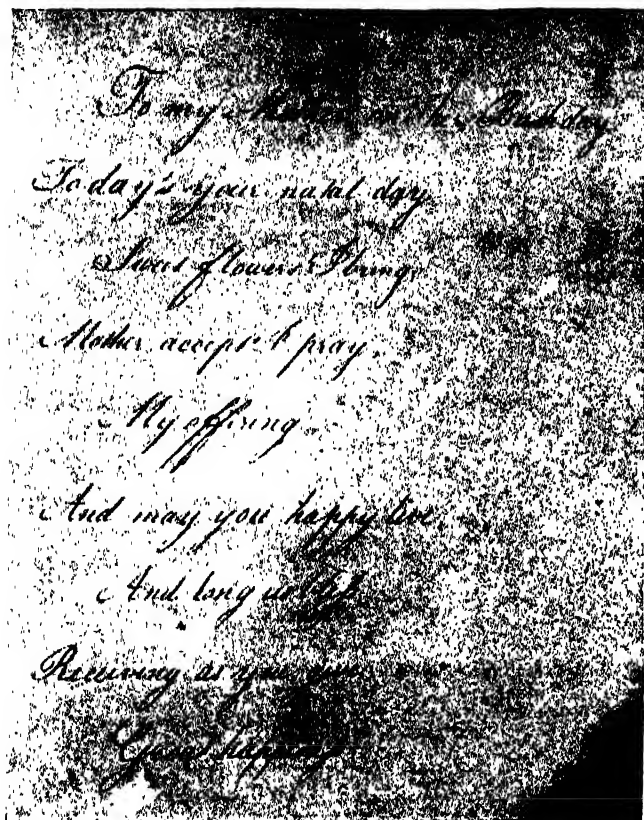 To my Mother on her Birthday
Today's your natal day
Sweet flowers I bring
Mother accept I pray
My offering
And may you happy live
And long us bless
Receiving as you give
Great happiness